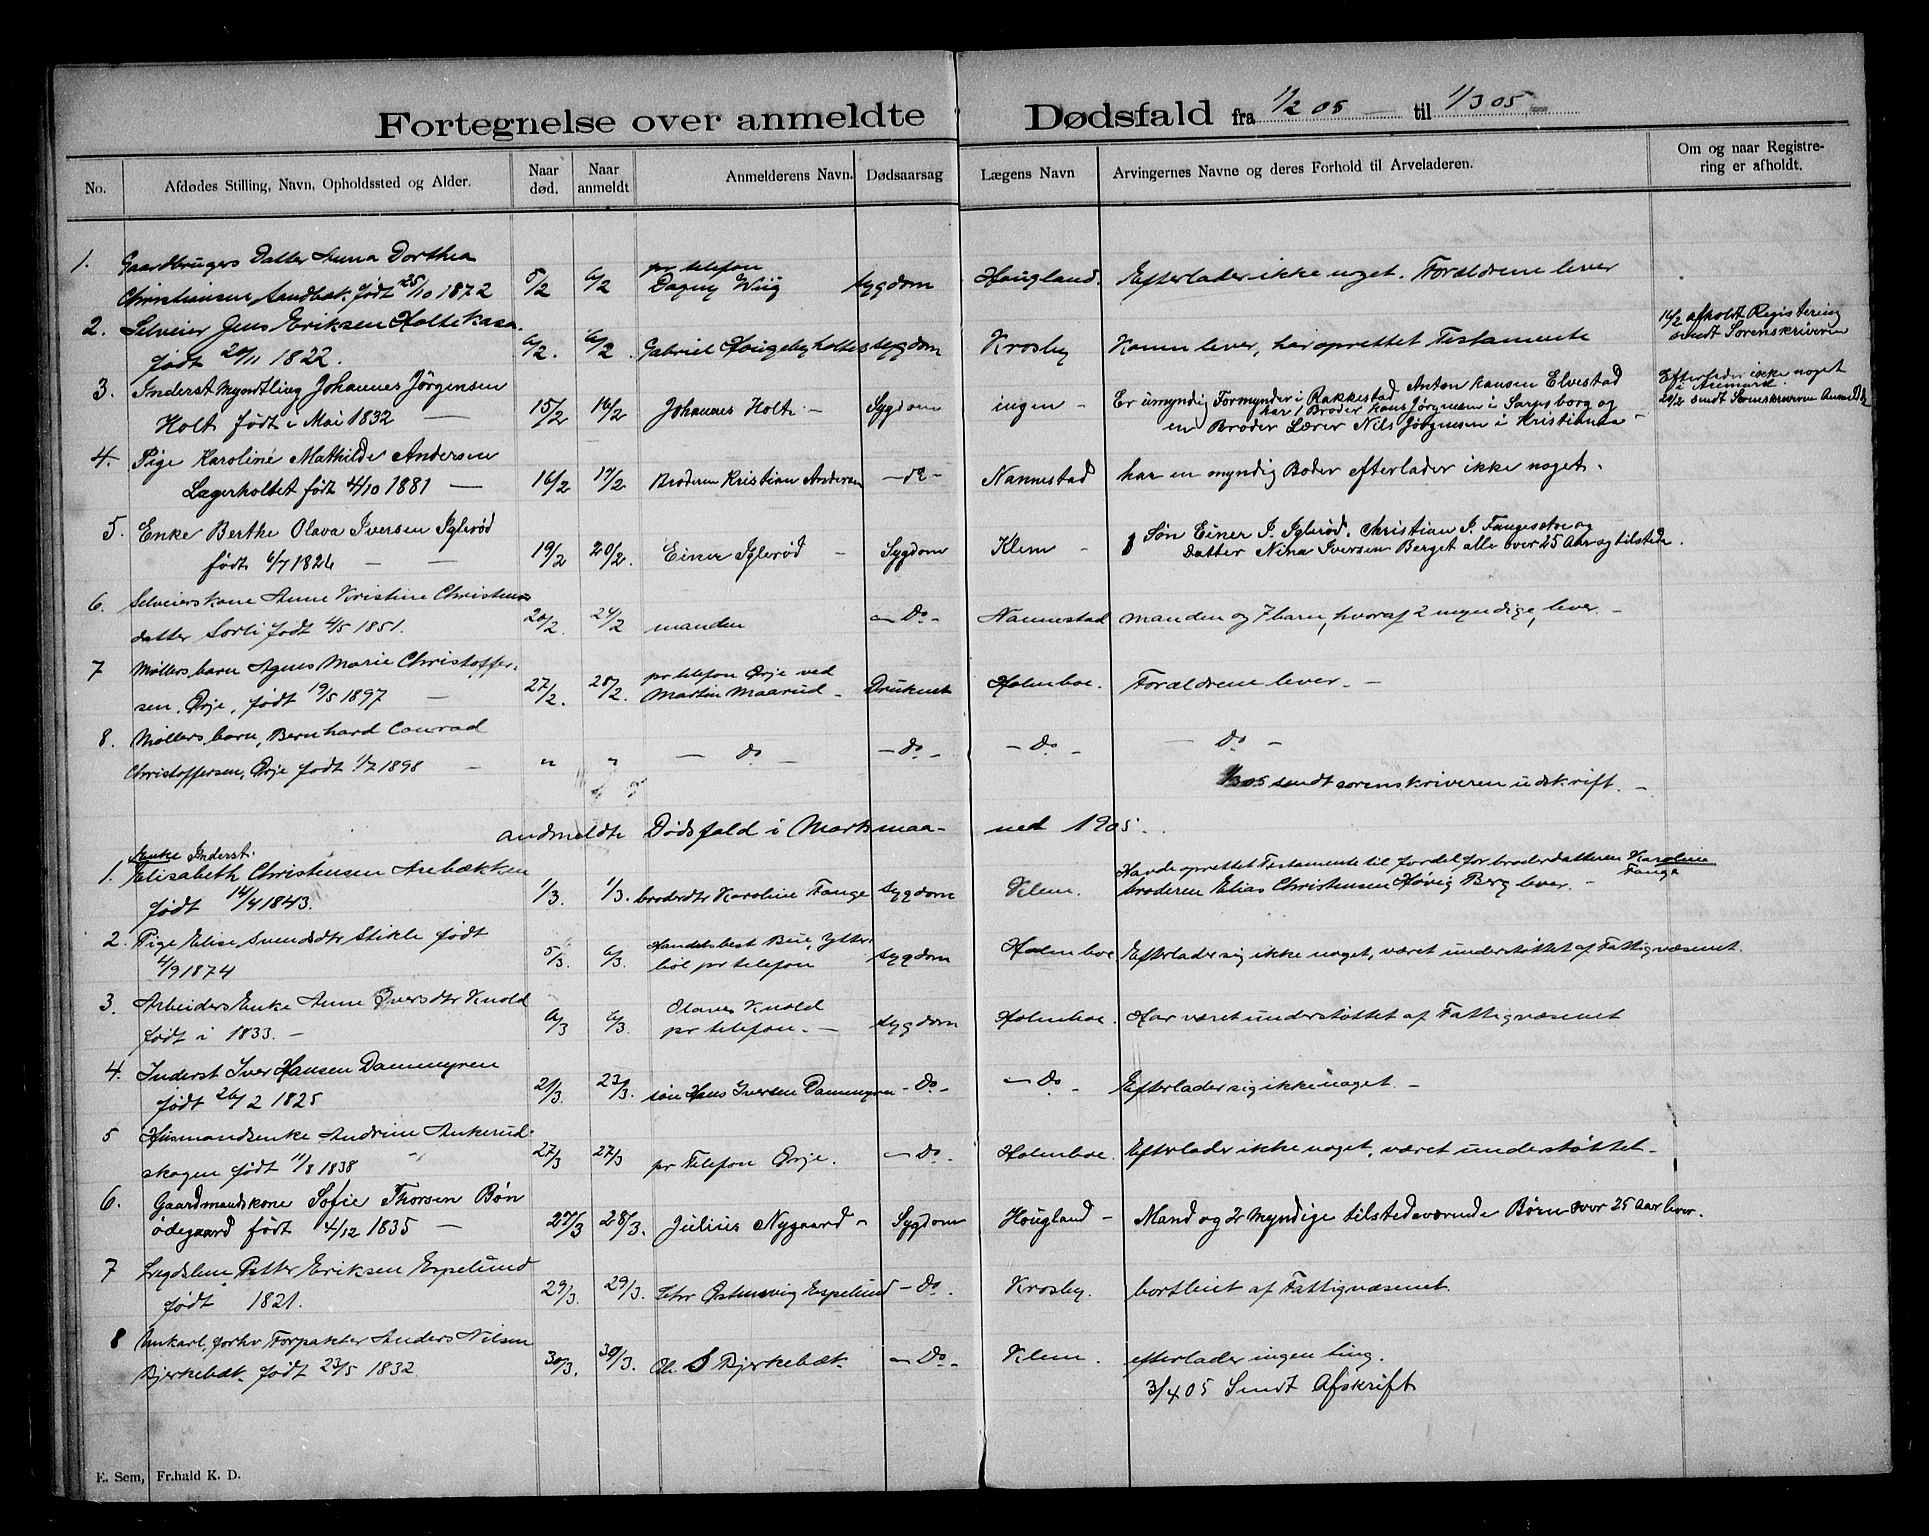 Fortegnelse over anmeldte Dødsfald fra 1/2 05 — til 1/3 05 —
No.
Afdødes Stilling, Navn, Opholdssted og Alder.
Naar død.
Naar anmeldt
Anmelderens Navn.
Dødsaarsag
Lægens Navn
Arvingernes Navne og deres Forhold til Arveladeren.
Om og naar Registre-
ring er afholdt.
1. Gaardbrugers Datter Anna Dorthea
Christiansen, Sandbæk, født 25/10 1872
5/2
6/2
pr telefon
Dagny Wiig
sygdom
Hougland.
Efterlader ikke noget. Forældrene lever
2. Selveier Jens Eriksen Holtekasa
født 20/11 1822.
6/2.
6/2.
Gabriel Hougebyholtes
sygdom
Krosby
Konen lever, har oprettet Testamente
16/2 afholdt Registering
sendt Sorenskriveren
3. Inderst Myndtling Johannes Jørgensen
Holt født i Mai 1832 —
15/2
16/2
Johannes Holt —
Sygdom
ingen —
Er umyndig Formynder i Rakkestad Anton Hansen Elvestad
har 1 Broder Hans Jørgensen i Sarpsborg og
en Broder Lærer Nils Jørgensen i Kristiania —
Efterlader ikke noget
i Aremark.
20/2 sendt Sorenskriveren
4. Pige Karoline Mathilde Andersen
Lagerholtet født 4/10 1881 —
16/2
17/2
Broderen Kristian Andersen
— do —
Nannestad
har en myndig Boder efterlader ikke noget.
5. Enke Berthe Olava Iversen Iglerød
født 6/7 1826 — —
19/2
20/2.
Einer Iglerød —
Sygdom
Klem —
Søn Einer I. Iglerød. Christian I. og
Datter Nina Iversen Berget alle over 25 Aar og tilstede.
6. Selveierskone Anne Kristine Christens
datter Sorli født 4/5 1851.
20/2.
24/2
manden
— Do —
Nannestad
manden og 7 barn, hvoraf 2 myndige, lever. —
7 Møllers barn Agnes Marie Christoffer-
sen, Ørje, født 19/5 1897 —
27/2.
28/2.
pr telefon Ørje ved
Martin Maarud —
Druknet
Holmboe.
Forældrene lever. —
8. Møllers barn, Bernhard Conrad
Christoffersen, Ørje født 1/7 1898 —
"
"
— Do —
— Do —
— Do —
— Do —
1/3 05 sendt sorenskriveren udskrift. —
andmeldte Dødsfald i Martsmaa- ned 1905.
1. Enke Inderst.
Elisabeth Christensen Arebækken
født 14/4 1843.
1/3
1/3.
broderdtr Karoline Fange
sygdom
Klem.
Havde oprettet Testamente til fordel for broderdatteren Karoline
Fange
broderen Elias Christensen Høvig Berg lever. —
2. Pige Elise Svendsdtr Stikle født
4/9 1874
5/3.
6/3.
Handelsbest Bue, Ytter
böl pr telefon
sygdom
Holmboe
Efterlader sig ikke noget, været understøttet af Fattigvæsenet.
3. Arbeiders Enke Anne Iversdtr Knold
født i 1833. —
6/3
6/3.
Olaves Knold
pr telefon. —
sygdom
Holmboe.
Har været understøttet af Fattigvæsenet
4. Inderst Iver Hansen Dammyren
født 26/2 1825
21/3.
23/3.
søn Hans Iversen Dammyren
— Do —
— Do —
Efterlader sig ikke noget. —
5 Husmandsenke Andrine Ankerud-
skogen født 11/8 1838
27/3
27/3
pr Telefon Ørje.
— Do —
Holmboe.
Efterlader ikke noget, været understøttet —
6. Gaardmandskone Sofie Thorsen Bøn
ødegaard født 4/12 1835 —
27/3
28/3.
Julius Nygaard —
Sygdom
Hougland —
Mand og 2 Myndige tilstedeværende Børn over 25 Aar lever.
7 Lægdslem Petter Eriksen Espelund
født 1821.
29/3.
29/3.
Espelund
— Do —
Krosby.
af Fattigvæsenet.
8 Unkarl, forhv Forpakter Anders Nilsen
Bjerkebæk. født 23/5 1832
30/3.
30/3.
Ol. S Bjerkebæk
— Do —
Klem.
efterlader ingen ting.
3/4 05 Sendt Afskrift
E. Sem, Fr.hald K. D.